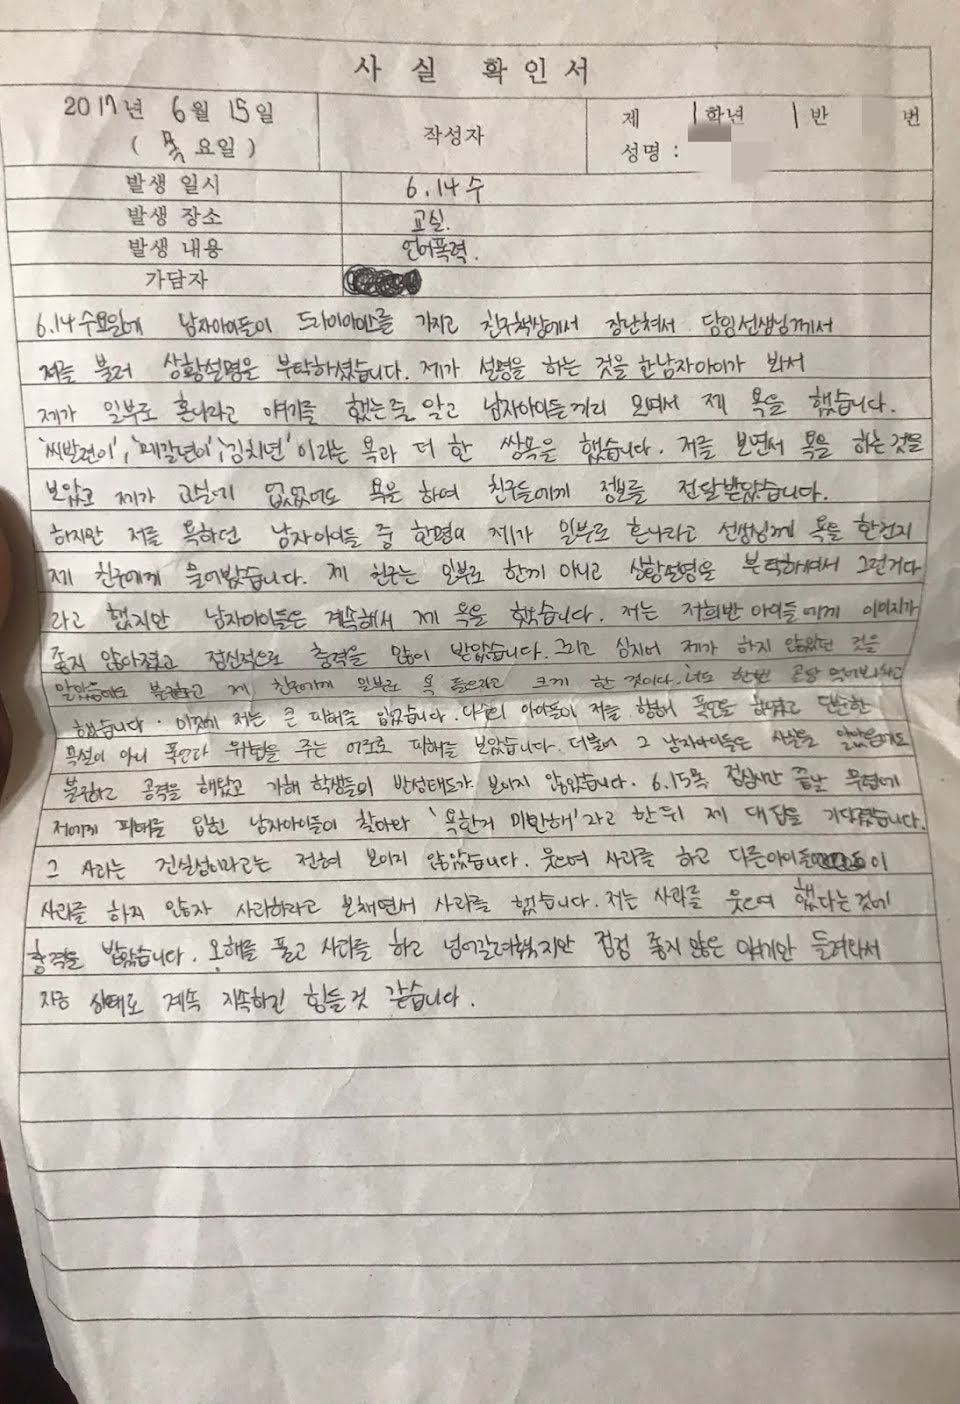 사 실 확 인 서
2017년 6월 15일
( 목 요일 )
작성자
제 1학년 1반 번
성명 :
발생 일시 6.14 수
발생 장소 교실.
발생 내용 언어폭력.
가담자
6.14 수요일에 남자아이들이 드라이아이스를 가지고 친구책상에서 장난쳐서 담임선생님께서
저를 불러 상황설명을 부탁하셨습니다. 제가 설명을 하는 것을 한남자아이가 봐서
제가 일부로 혼나라고 얘기를 했는줄 알고 남자아이들끼리 모여서 제 욕을 했습니다.
'씨발련이', '메갈년이', '김치년' 이라는 욕과 더 한 쌍욕을 했습니다. 저를 보면서 욕을 하는것을
보았고 제가 교실에 없었어도 욕을 하여 친구들에게 정보를 전달받았습니다.
하지만 저를 욕하던 남자아이들 중 한명이 제가 일부로 혼나라고 선생님께 욕을 한건지
제 친구에게 물어봤습니다. 제 친구는 일부로 한게 아니고 상황설명을 부탁하셔서 그런거다
라고 했지만 남자아이들은 계속해서 제 욕을 했습니다. 저는 저희반 아이들에게 이미지가
좋지 않아졌고 정신적으로 충격을 많이 받았습니다. 그리고 심지어 제가 하지 않았던 것을
알았음에도 불구하고 제 친구에게 일부로 욕 들으라고 크게 한 것이다. 너도 한번 먹어봐라고
했습니다. 이것에 저는 큰 피해를 입었습니다. 다수의 아이들이 저를 향해 폭언을 하였고 단순한
욕설이 아니 폭언과 위협을 주는 어조로 피해를 보았습니다. 더불어 그 남자아이들은 사실을 알았음에도
불구하고 공격을 해왔고 가해 학생들이 반성태도가 보이지 않았습니다. 6.15목 점심시간 끝날 무렵에
저에게 피해를 입힌 남자아이들이 찾아와 '욕한거 미안해'라고 한뒤 제 대답을 기다렸습니다.
그 사과는 진실성이라고는 전혀 보이지 않았습니다. 웃으며 사과를 하고 다른아이들이
사과를 하지 않자 사과하라고 보채면서 사과를 했습니다. 저는 사과를 웃으며 했다는것에
충격을 받았습니다. 오해를 풀고 사과를 하고 넘어갈려했지만 점점 좋지 않은 얘기만 들려와서
지금 상태로 계속 지속하긴 힘들것 같습니다.